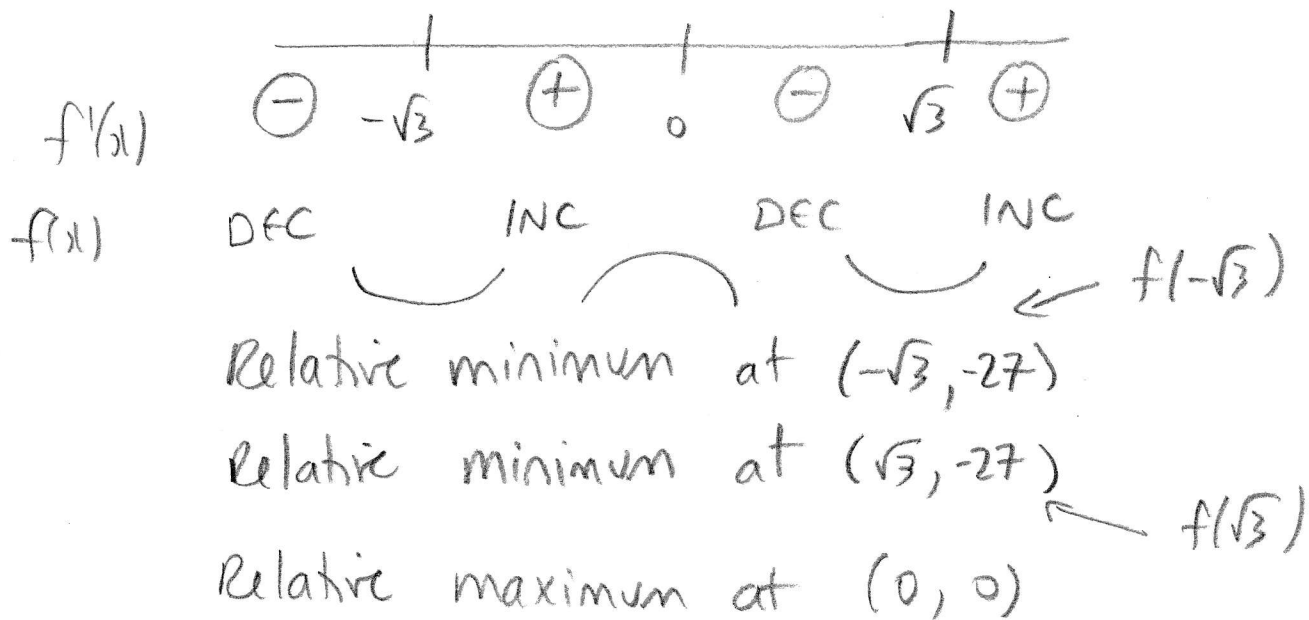 f'(x) ⊖ -√3 ⊕ 0 ⊖ √3 ⊕
f(x) DEC INC DEC INC
f(-√3)
Relative minimum at (-√3, -27)
Relative minimum at (√3, -27)
f(√3)
Relative maximum at (0, 0)